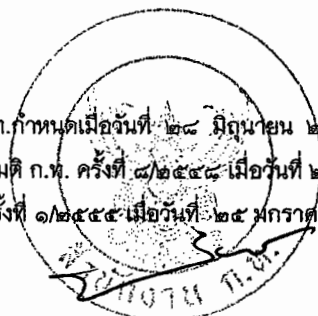 ท.กำหนดเมื่อวันที่ ๒๘ มิถุนายน ๒
มติ ก.ท. ครั้งที่ ๘/๒๕๔๘ เมื่อวันที่ ๒
รั้งที่ ๑/๒๕๕๕ เมื่อวันที่ ๒๕ มกราค
สำนักงาน ก.ท.